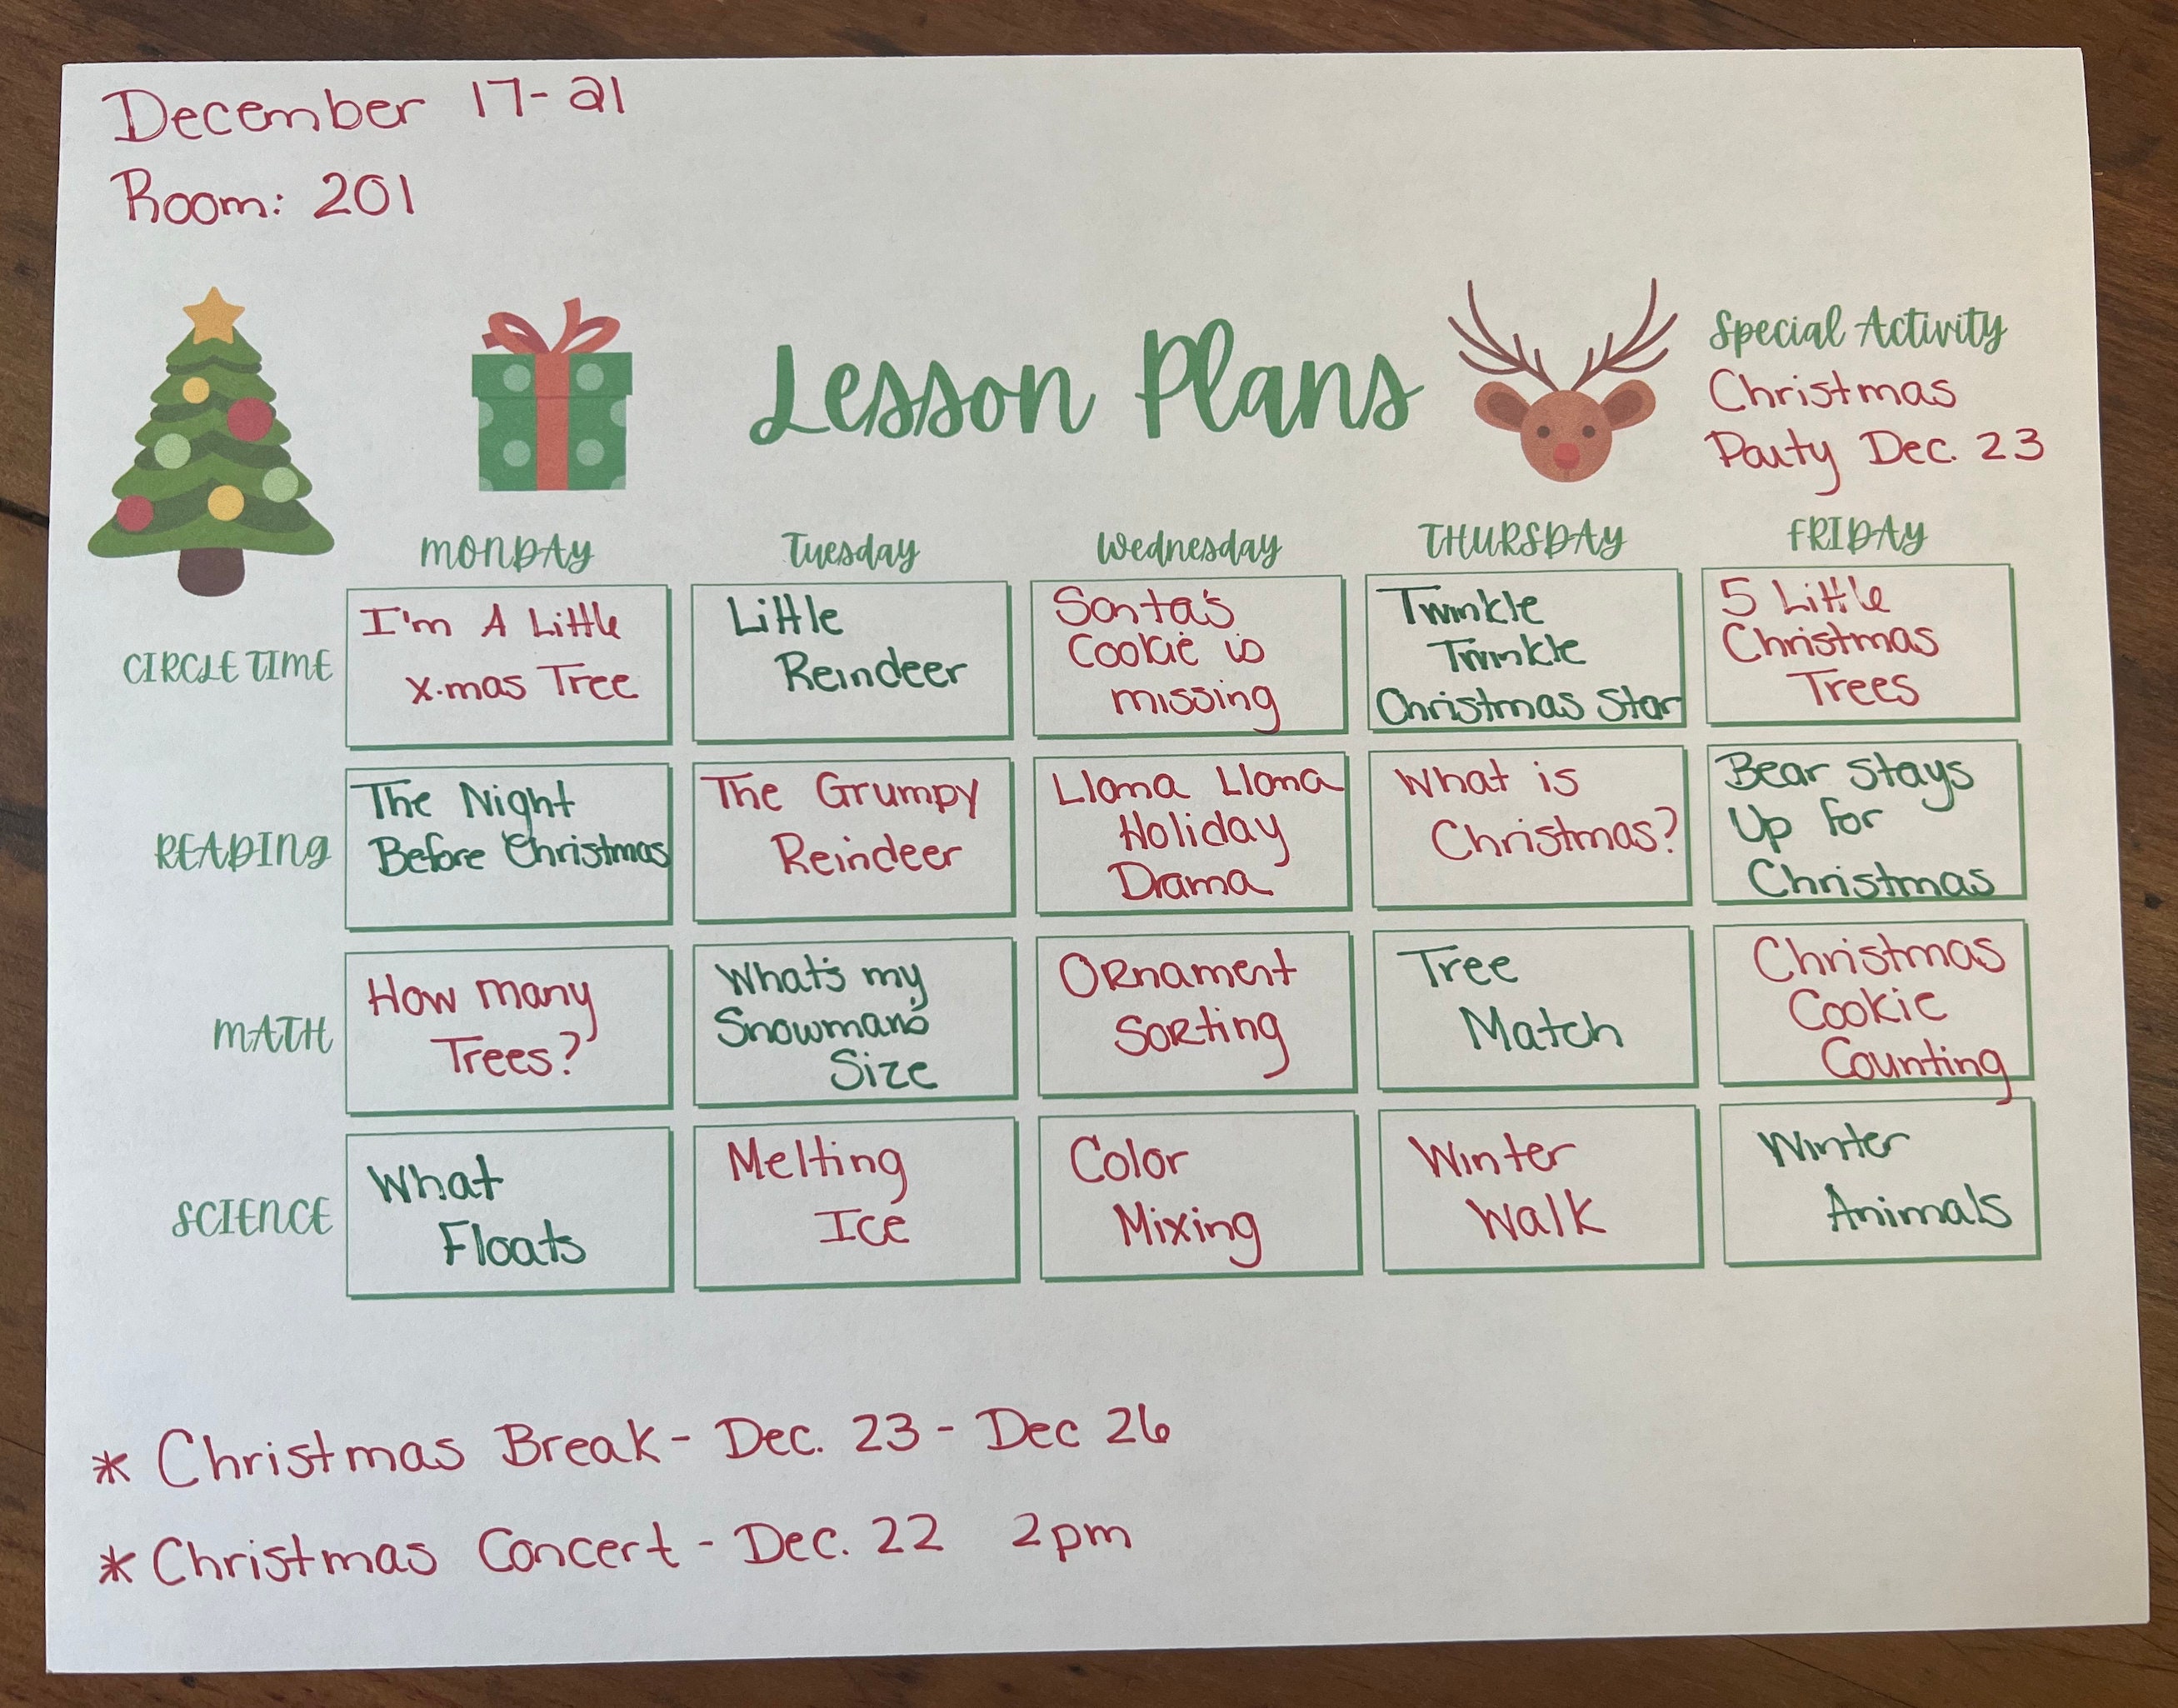 December 17-21
Room: 201
Lesson Plans
Special Activity
Christmas
Party Dec. 23
MONDAY Tuesday Wednesday THURSDAY FRIDAY
CIRCLE TIME
I'm A Little
X-mas Tree
Little
Reindeer
Santa's
Cookie is
missing
Twinkle
Twinkle
Christmas Star
5 Little
Christmas
Trees
READING
The Night
Before Christmas
The Grumpy
Reindeer
Llama Llama
Holiday
Drama
What is
Christmas?
Bear Stays
Up for
Christmas
MATH
How many
Trees?
What's my
Snowman's
Size
Ornament
Sorting
Tree
Match
Christmas
Cookie
Counting
SCIENCE
What
Floats
Melting
Ice
Color
Mixing
Winter
Walk
Winter
Animals
* Christmas Break - Dec. 23 - Dec 26
* Christmas Concert - Dec. 22 2pm